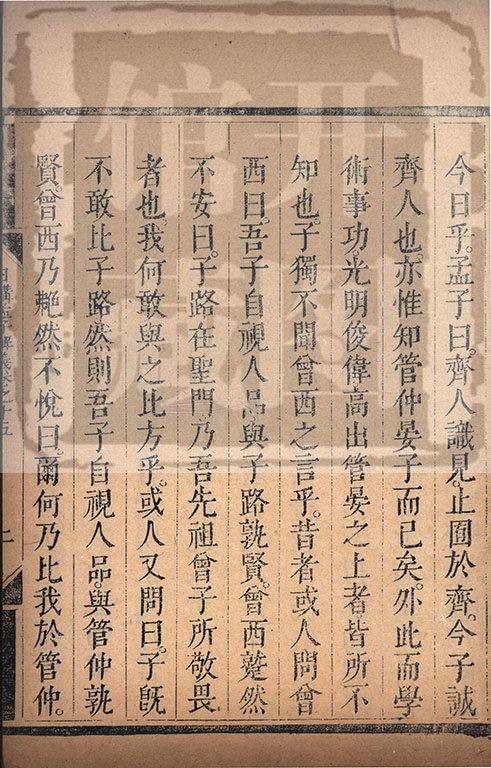 今日乎。孟子曰。齊人識見。止囿於齊。今子誠
齊人也。亦惟知管仲晏子而已矣。外此而學
術事功。光明俊偉高出管晏之上者皆所不
知也。子獨不聞曾西之言乎。昔者或人問曾
西曰。吾子自視人品與子路孰賢。曾西蹵然
不安曰。子路在聖門乃吾先祖曾子所敬畏
者也我何敢與之比方乎。或人又問曰。子旣
不敢比子路然則吾子自視人品。與管仲孰
賢。曾西乃艴然不悅曰。爾何乃比我於管仲。
日講四書解義卷之十五
二